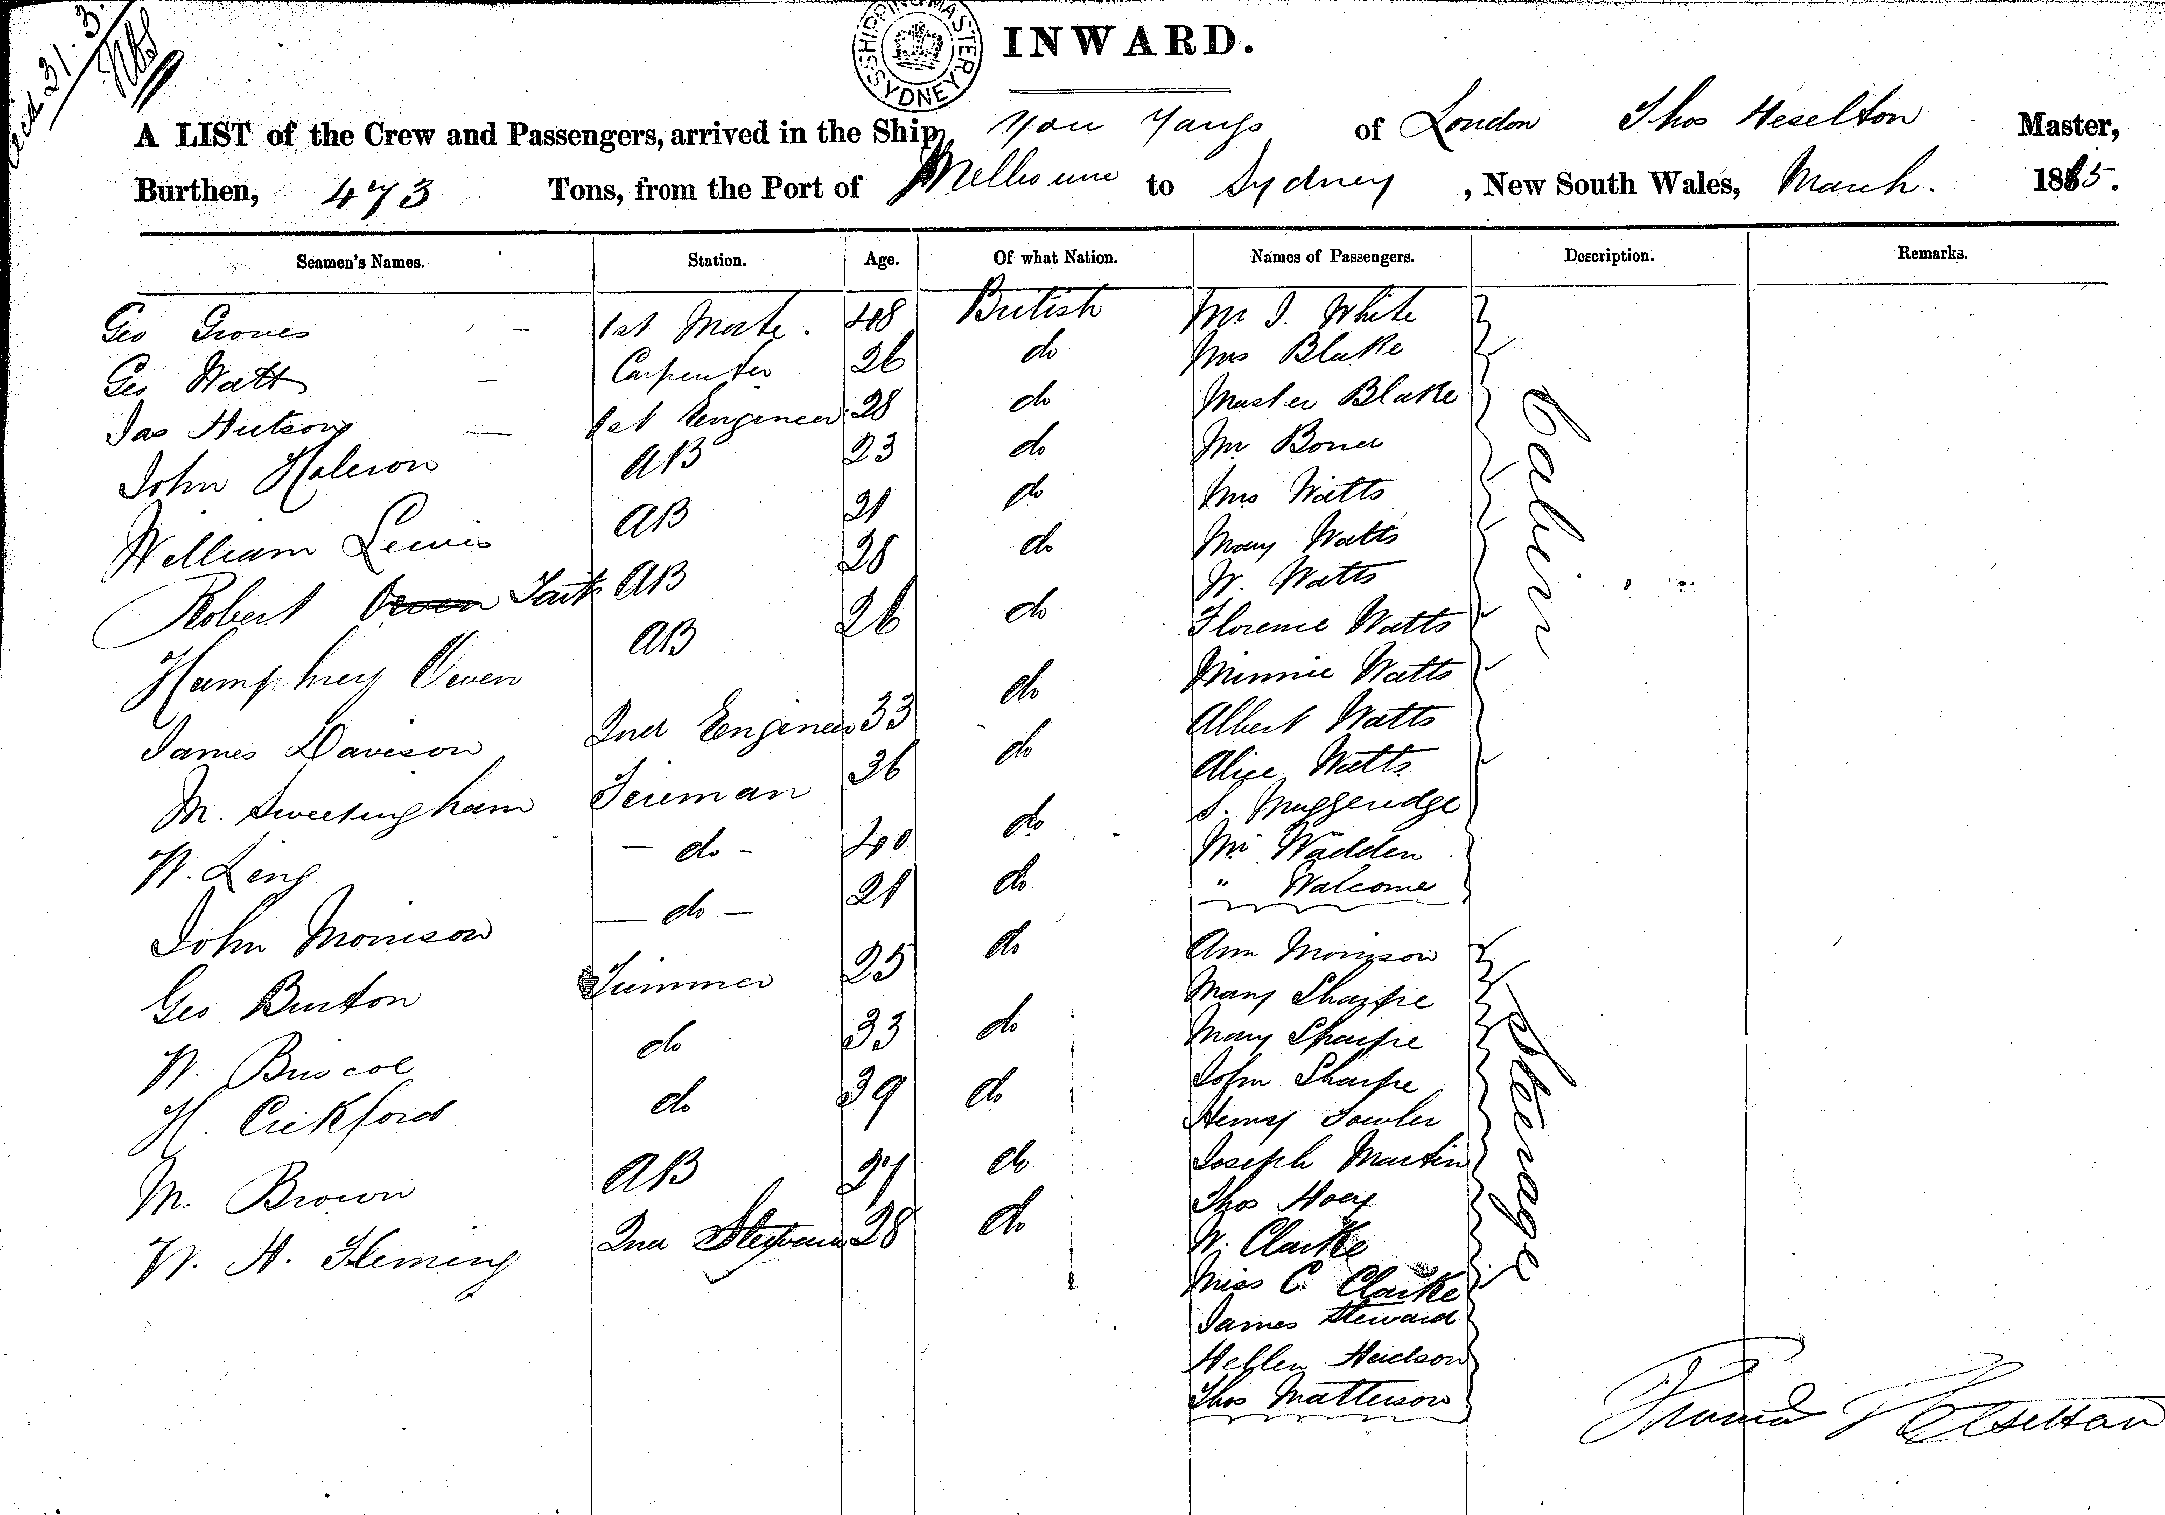 Recd 31.3.
SHIPPING MASTER SYDNEY
INWARD.
A LIST of the Crew and Passengers, arrived in the Ship You Yangs of London Thos Heselton Master,
Burthen, 473 Tons, from the Port of Melbourne to Sydney, New South Wales, March. 1885.
Seamen's Names. Station. Age. Of what Nation. Names of Passengers. Description. Remarks.
Geo Groves 1st Mate. 48 British Mr J. White
Geo Watt Carpenter 26 do Mrs Blake
Jas Hutson 1st Engineer 28 do Master Blake
John 23 AB do Mr Boner
William Lewis AB 21 do Mrs Watts
Mary Watts
Robert Owen AB 28 do W. Watts
Humphrey Owen AB 26 do Florence Watts
Minnie Watts
James Davison 2nd Engineer 33 do Albert Watts
M. Sweetingham Fireman 36 do Alice Watts
S. Muggeridge
W. Ling - do - 40 do Mr Wadden
John Morrison - do - 21 do " Walcome
Cabin
Geo Burton Trimmer 25 do Ann Morrison
Mary Sharpe
W. Briscoe do 33 do Mary Sharpe
H. Crickford do 39 do John Sharpe
Henry Fowler
M. Brown AB 27 do Joseph Martin
Thos Hoey
W. H. Fleming 2nd Steward 28 do W. Clarke
Miss C. Clarke
James Steward
Hellen Hudson
Thos Matterson
Steerage
Thomas Heselton